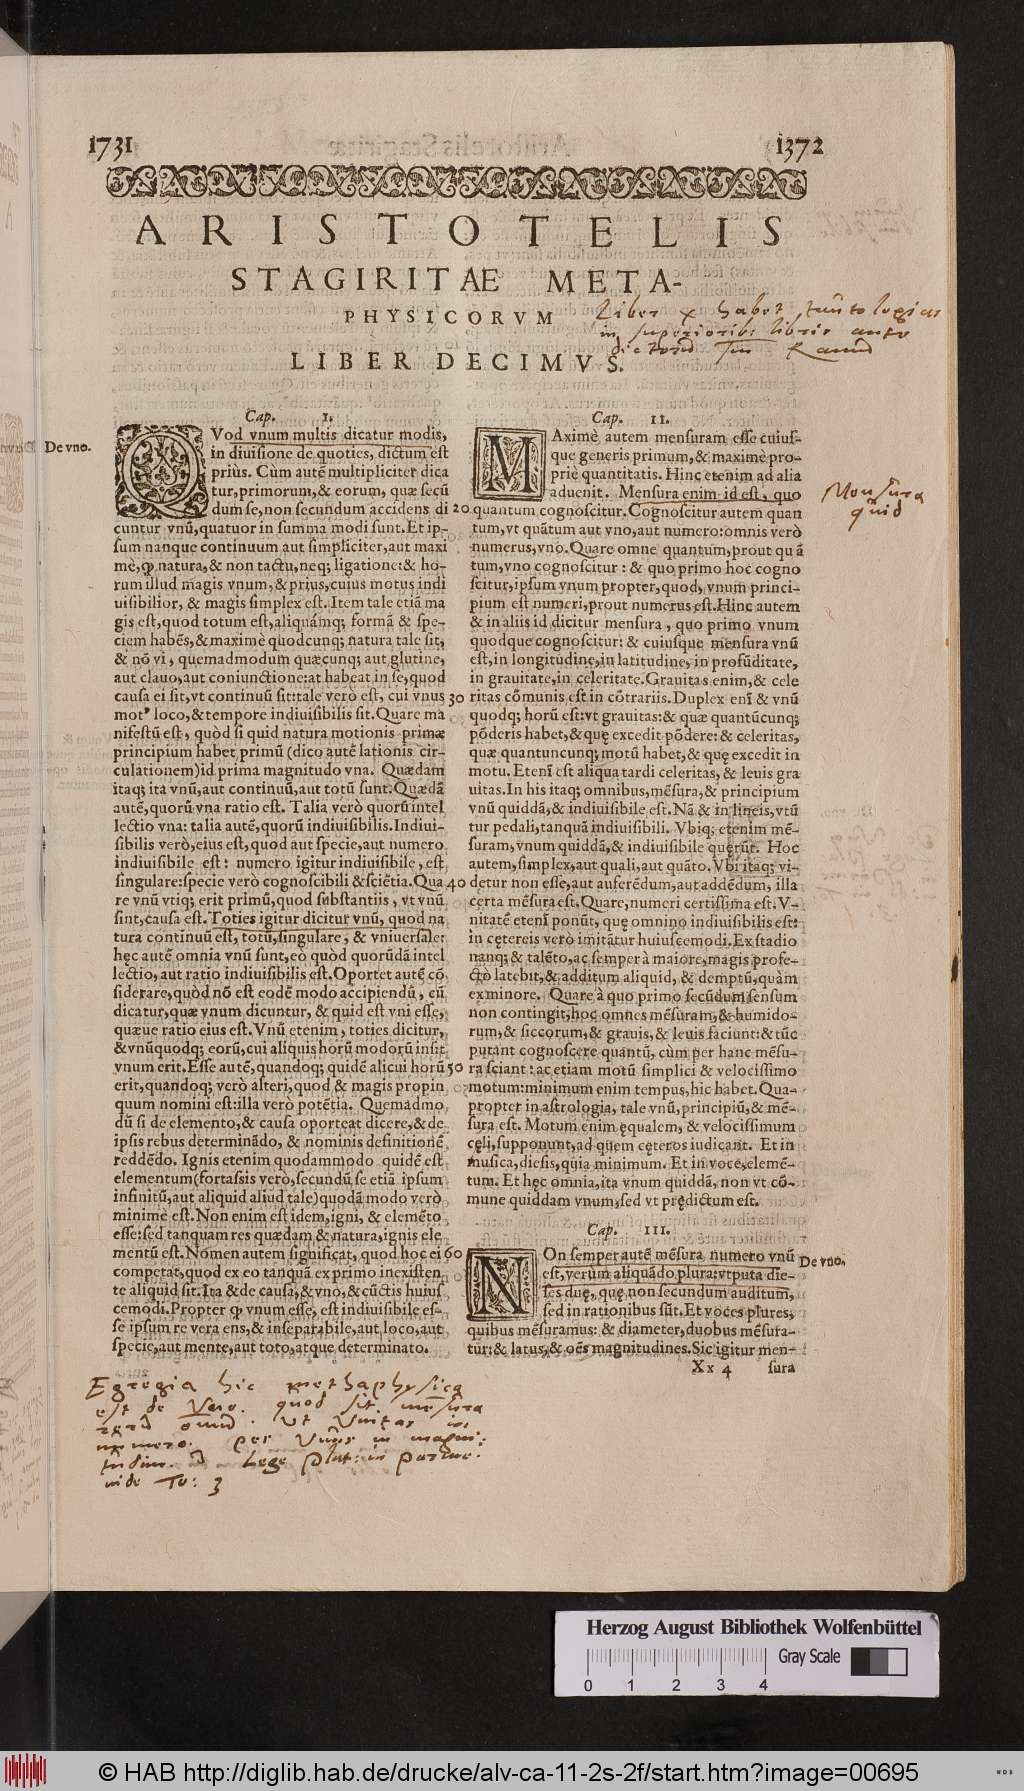 1731
1372
ARISTOTELIS
STAGIRITAE META-
PHYSICORVM
LIBER DECIMVS.
Liber x habet tautologias
in superiorib. libris ante
Cap. I.
De vno.
QVod vnum multis dicatur modis,
in diuisione de quoties, dictum est
priùs. Cùm autē multipliciter dica
tur, primorum, & eorum, quæ secū
dum se, non secundum accidens di
cuntur vnū, quatuor in summa modi sunt. Et ip-
sum nanque continuum aut simpliciter, aut maxi
mè, ꝙ natura, & non tactu, neq; ligatione: & ho-
rum illud magis vnum, & prius, cuius motus indi
uisibilior, & magis simplex est. Item tale etiā ma
gis est, quod totum est, aliquámq; formā & spe-
ciem habēs, & maximè quodcunq; natura tale sit,
& nō vi, quemadmodum quæcunq; aut glutine,
aut clauo, aut coniunctione: at habeat in se, quod
causa ei sit, vt continuū sit: tale verò est, cui vnus
motꝰ loco, & tempore indiuisibilis sit. Quare ma
nifestū est, quòd si quid natura motionis primæ
principium habet primū (dico autē lationis cir-
culationem) id prima magnitudo vna. Quædam
itaq; ita vnū, aut continuū, aut totū sunt. Quædā
autē, quorū vna ratio est. Talia verò quorū intel
lectio vna: talia autē, quorū indiuisibilis. Indiui-
sibilis verò, eius est, quod aut specie, aut numero
indiuisibile est: numero igitur indiuisibile, est
singulare: specie verò cognoscibili & sciētia. Qua
re vnū vtiq; erit primū, quod substantijs, vt vnū
sint, causa est. Toties igitur dicitur vnū, quod na
tura continuū est, totū, singulare, & vniuersale:
hęc autē omnia vnū sunt, eò quòd quorūdā intel
lectio, aut ratio indiuisibilis est. Oportet autē cō
siderare, quòd nō est eodē modo accipiendū, cū
dicatur, quæ vnum dicuntur, & quid est vni esse,
quæue ratio eius est. Vnū etenim, toties dicitur,
& vnūquodq; eorū, cui aliquis horū modorū insit
vnum erit. Esse autē, quandoq; quidē alicui horū
erit, quandoq; verò alteri, quod & magis propin
quum nomini est: illa verò potētia. Quemadmo
dū si de elemento, & causa oporteat dicere, & de
ipsis rebus determinādo, & nominis definitionē
reddēdo. Ignis etenim quodammodo quidē est
elementum (fortassis verò, secundū se etiā ipsum
infinitū, aut aliquid aliud tale) quodā modo verò
minimè est. Non enim est idem, igni, & elemēto
esse: sed tanquam res quædam & natura, ignis ele
mentū est. Nomen autem significat, quod hoc ei
competat, quod ex eo tanquā ex primo inexisten
te aliquid sit. Ita & de causa, & vno, & cūctis huius
cemodi. Propter ꝙ vnum esse, est indiuisibile es-
se ipsum re vera ens, & inseparabile, aut loco, aut
specie, aut mente, aut toto, atque determinato.
20
30
40
50
60
Cap. II.
MAximè autem mensuram esse cuius-
que generis primum, & maximè pro-
priè quantitatis. Hinc etenim ad alia
aduenit. Mensura enim id est, quo
quantum cognoscitur. Cognoscitur autem quan
tum, vt quātum aut vno, aut numero: omnis verò
numerus, vno. Quare omne quantum, prout quā
tum, vno cognoscitur: & quo primo hoc cogno
scitur, ipsum vnum propter, quod, vnum princi-
pium est numeri, prout numerus est. Hinc autem
& in aliis id dicitur mensura, quo primo vnum
quodque cognoscitur: & cuiusque mensura vnū
est, in longitudine, in latitudine, in profūditate,
in grauitate, in celeritate. Grauitas enim, & cele
ritas cōmunis est in cōtrariis. Duplex enī & vnū
quodq; horū est: vt grauitas: & quæ quantūcunq;
pōderis habet, & quę excedit pōdere: & celeritas,
quæ quantuncunq; motū habet, & quę excedit in
motu. Etenī est aliqua tardi celeritas, & leuis gra
uitas. In his itaq; omnibus, mēsura, & principium
vnū quiddā, & indiuisibile est. Nā & in lineis, vtū
tur pedali, tanquā indiuisibili. Vbiq; etenim mē-
suram, vnum quiddā, & indiuisibile quęrūt. Hoc
autem, simplex, aut quali, aut quāto. Vbi itaq; vi-
detur non esse, aut auferēdum, aut addēdum, illa
certa mēsura est. Quare, numeri certissima est. V-
nitatē etenī ponūt, quę omnino indiuisibilis est:
in cęteris verò imitātur huiuscemodi. Ex stadio
nanq; & talēto, ac semper à maiore, magis profe-
ctò latebit, & additum aliquid, & demptū, quàm
ex minore. Quare à quo primo secūdum sensum
non contingit, hoc omnes mēsuram, & humido-
rum, & siccorum, & grauis, & leuis faciunt: & tūc
putant cognoscere quantū, cùm per hanc mēsu-
ra sciant: ac etiam motū simplici & velocissimo
motum: minimum enim tempus, hic habet. Qua-
propter in astrologia, tale vnū, principiū, & mē-
sura est. Motum enim ęqualem, & velocissimum
cęli, supponunt, ad quem cęteros iudicant. Et in
musica, diesis, quia minimum. Et in voce, elemē-
tum. Et hęc omnia, ita vnum quiddā, non vt cō-
mune quiddam vnum, sed vt prędictum est.
Mensura
quid
Cap. III.
NOn semper autē mēsura numero vnū
est, verùm aliquādo plura: vt puta die-
ses duę, quę non secundum auditum,
sed in rationibus sūt. Et voces plures,
quibus mēsuramus: & diameter, duobus mēsura-
tur: & latus, & oēs magnitudines. Sic igitur men-
De vno.
Xx 4 sura
Egregia hic methaphysica
est de Vno. quod sit mesura
rerū omniū. ut Unitas in
numero. per
Lege plat: in parme.
uide To: 3
Herzog August Bibliothek Wolfenbüttel
Gray Scale
0 1 2 3 4
© HAB http://diglib.hab.de/drucke/alv-ca-11-2s-2f/start.htm?image=00695